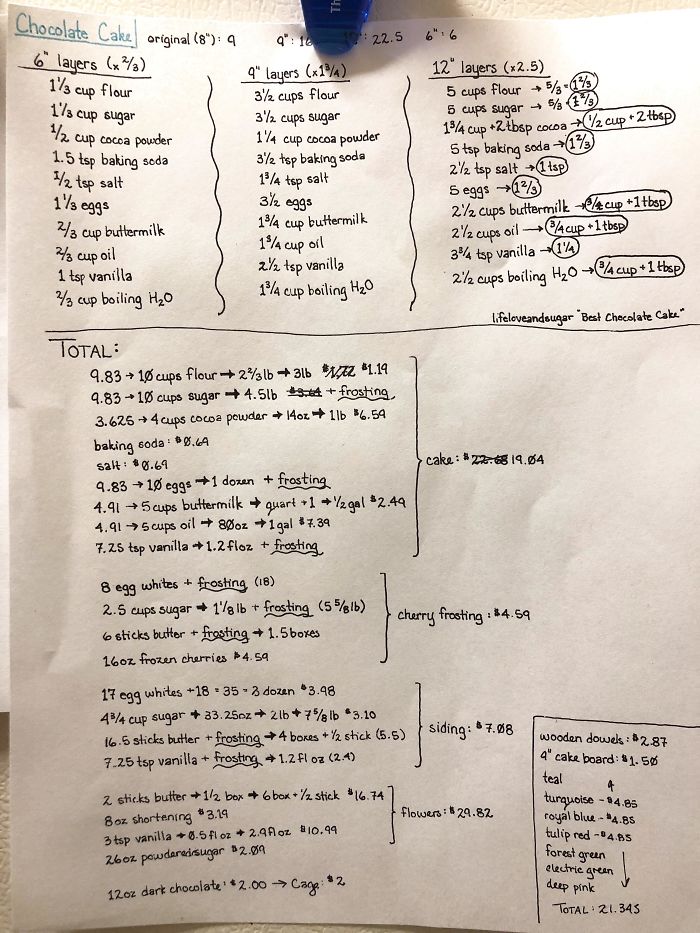 Th
Chocolate Cake original (8"): 9 9": 16 12": 22.5 6": 6
6" layers (x 2/3)
1 1/3 cup flour
1 1/3 cup sugar
1/2 cup cocoa powder
1.5 tsp baking soda
1/2 tsp salt
1 1/3 eggs
2/3 cup buttermilk
2/3 cup oil
1 tsp vanilla
2/3 cup boiling H2O
9" layers (x1 3/4)
3 1/2 cups flour
3 1/2 cups sugar
1 1/4 cup cocoa powder
3 1/2 tsp baking soda
1 3/4 tsp salt
3 1/2 eggs
1 3/4 cup buttermilk
1 3/4 cup oil
2 1/2 tsp vanilla
1 3/4 cup boiling H2O
12" layers (x2.5)
5 cups flour → 5/3 = 1 2/3
5 cups sugar → 5/3 = 1 2/3
1 3/4 cup + 2 tbsp cocoa → 1/2 cup + 2 tbsp
5 tsp baking soda → 1 2/3
2 1/2 tsp salt → 1 tsp
5 eggs → 1 2/3
2 1/2 cups buttermilk → 3/4 cup + 1 tbsp
2 1/2 cups oil → 3/4 cup + 1 tbsp
3 3/4 tsp vanilla → 1 1/4
2 1/2 cups boiling H2O → 3/4 cup + 1 tbsp
lifeloveandsugar "Best Chocolate Cake"
TOTAL:
9.83 → 10 cups flour → 2 2/3 lb → 3lb $1.19
9.83 → 10 cups sugar → 4.5lb $3.64 + frosting
3.625 → 4 cups cocoa powder → 14oz → 1lb $6.59
baking soda: $0.69
salt: $0.69
9.83 → 10 eggs → 1 dozen + frosting
4.91 → 5 cups buttermilk → quart + 1 → 1/2 gal $2.49
4.91 → 5 cups oil → 80oz → 1 gal $7.39
7.25 tsp vanilla → 1.2 fl oz + frosting
cake: $22.68 19.04
8 egg whites + frosting (18)
2.5 cups sugar → 1 1/8 lb + frosting (5 5/8 lb)
6 sticks butter + frosting → 1.5 boxes
16oz frozen cherries $4.59
cherry frosting: $4.59
17 egg whites + 18 = 35 = 3 dozen $3.98
4 3/4 cup sugar → 33.25oz → 2lb + 7 5/8 lb $3.10
16.5 sticks butter + frosting → 4 boxes + 1/2 stick (5.5)
7.25 tsp vanilla + frosting → 1.2 fl oz (2.4)
siding: $7.08
2 sticks butter → 1/2 box → 6 box + 1/2 stick $16.74
8oz shortening $3.19
3 tsp vanilla → 0.5 fl oz → 2.9 fl oz $10.99
26oz powdered sugar $2.09
flowers: $29.82
12oz dark chocolate: $2.00 → Cage: $2
wooden dowels: $2.87
4" cake board: $1.50
teal
turquoise - $4.85
royal blue - $4.85
tulip red - $4.85
forest green
electric green
deep pink
TOTAL: 21.345